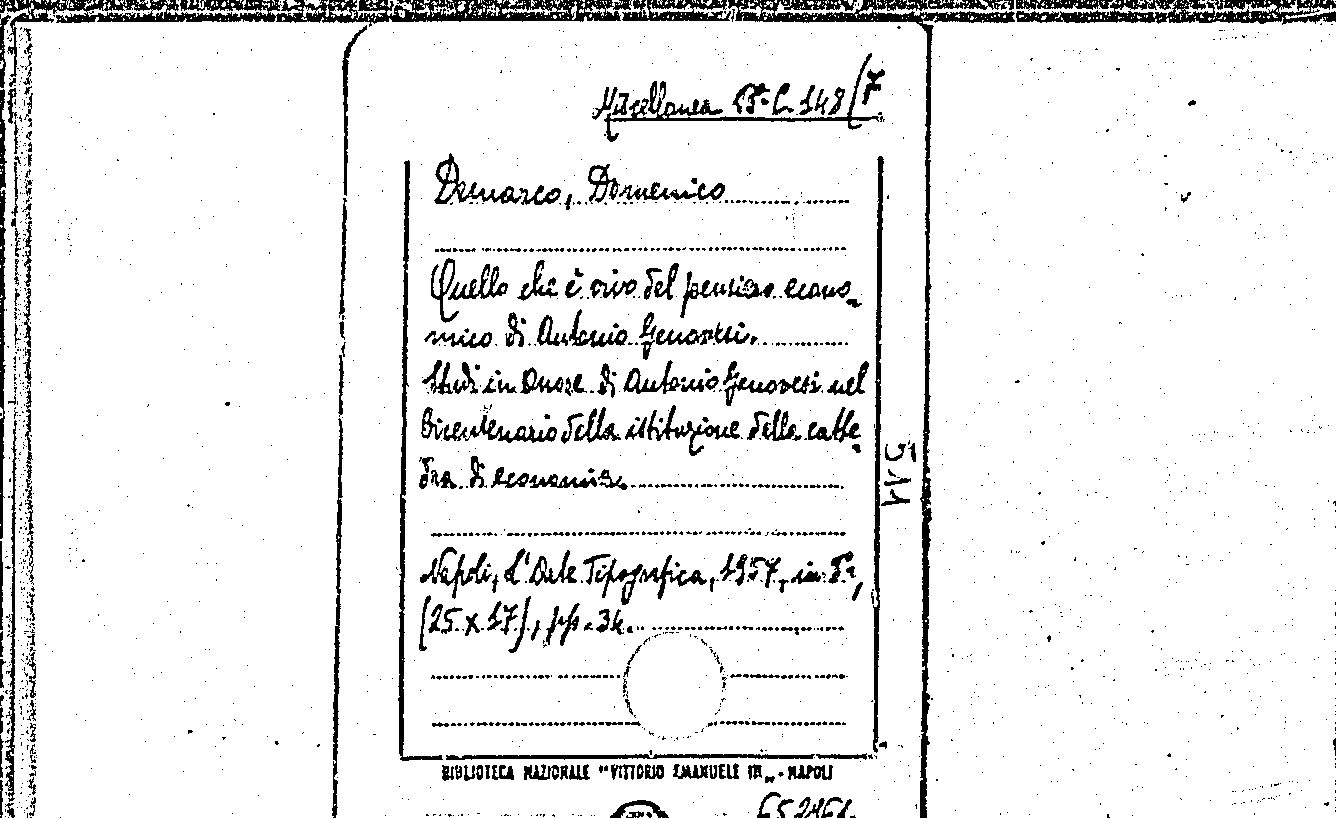 Miscellanea B. C. 148/7
Demarco, Domenico
Quello che è vivo del pensiero econo-
mico di Antonio Genovesi.
Studi in onore di Antonio Genovesi nel
bicentenario della istituzione della catte-
dra di economia.
511
Napoli, L'Arte Tipografica, 1957, in 8°,
(25 x 17), pp. 34.
BIBLIOTECA NAZIONALE "VITTORIO EMANUELE III„ - NAPOLI